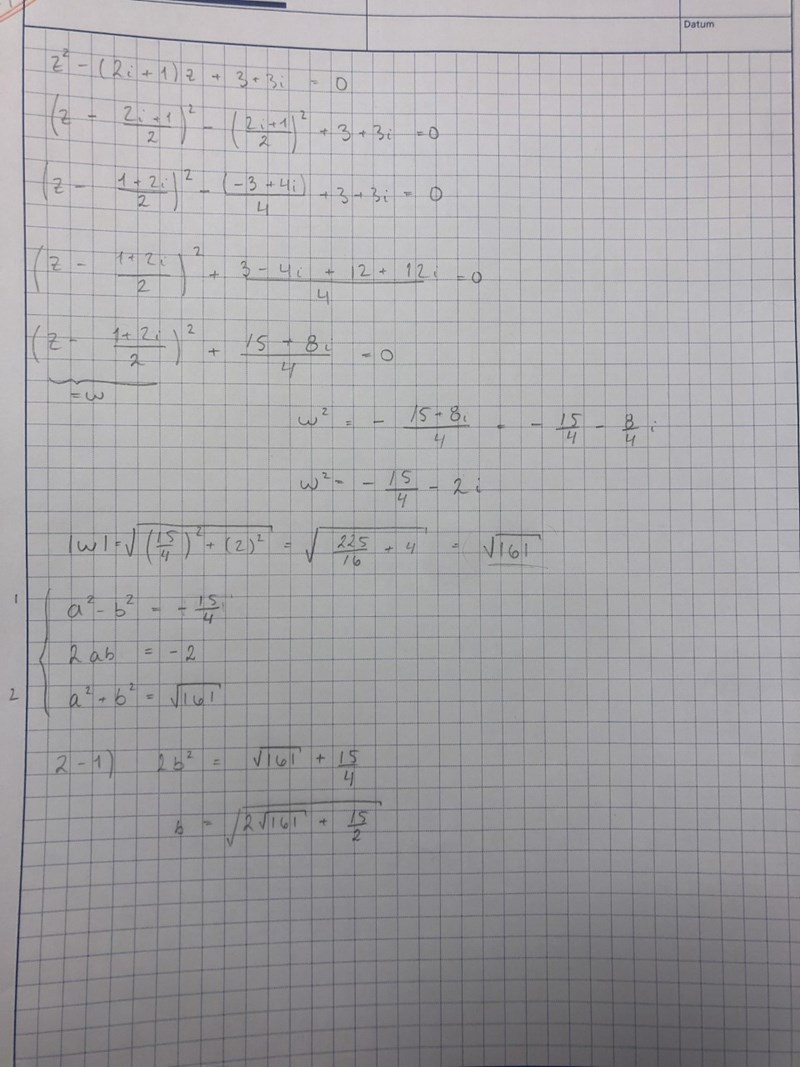 Datum
z² - (2i+1)z + 3+3i = 0
(z - (2i+1)/2)² - ((2i+1)/2)² + 3 + 3i = 0
(z - (1+2i)/2)² - (-3+4i)/4 + 3+3i = 0
(z - (1+2i)/2)² + (3-4i + 12 + 12i)/4 = 0
(z - (1+2i)/2)² + (15+8i)/4 = 0
=w
w² = - (15+8i)/4 = - 15/4 - 8/4 i
w² = - 15/4 - 2i
|w| = √((15/4)² + (2)²) = √(225/16 + 4) = √161
1 a² - b² = - 15/4
2ab = -2
2 a² + b² = √161
2-1) 2b² = √161 + 15/4
b = √(2√161 + 15/2)